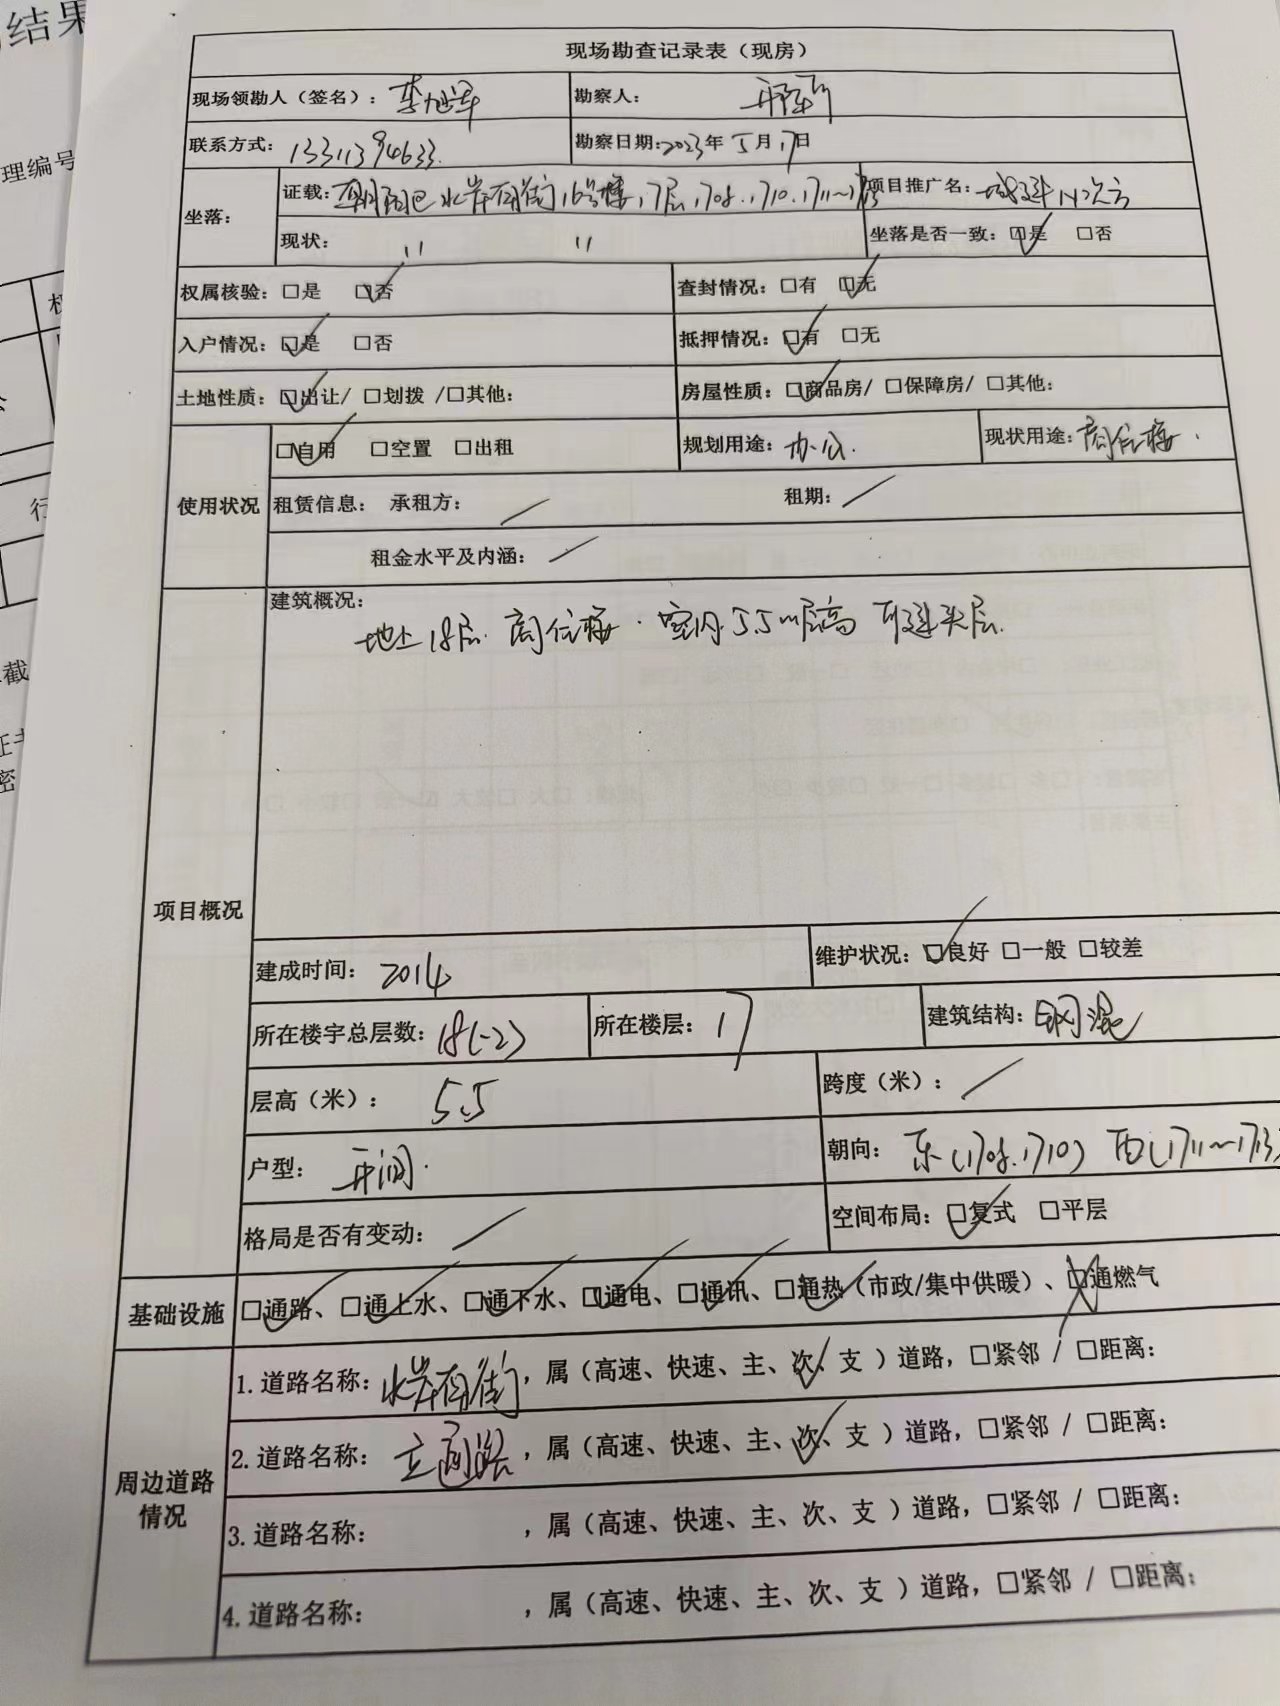 结果
理编号
权
行
截
证书
密
现场勘查记录表（现房）
现场领勘人（签名）： 李旭军 勘察人：
联系方式：13311394633. 勘察日期：2023年5月17日
坐落： 证载：朝阳区水岸南街16号楼17层1708.1710.1711~1713 项目推广名：
现状： 〃 〃 坐落是否一致：☑是 □否
权属核验：□是 ☑否 查封情况：□有 ☑无
入户情况：☑是 □否 抵押情况：☑有 □无
土地性质：☑出让/ □划拨 /□其他： 房屋性质：☑商品房/ □保障房/ □其他：
使用状况 ☑自用 □空置 □出租 规划用途：办公. 现状用途：商住楼.
租赁信息： 承租方： / 租期：/
租金水平及内涵： /
项目概况 建筑概况：
地上18层. 商住楼. 室内5.5m层高 可建夹层.
建成时间： 2014 维护状况：☑良好 □一般 □较差
所在楼宇总层数：18(-2) 所在楼层：17 建筑结构：钢混
层高（米）： 5.5 跨度（米）： /
户型： 开间. 朝向： 东(1708.1710) 西(1711~1713)
格局是否有变动： / 空间布局：☑复式 □平层
基础设施 ☑通路、☑通上水、☑通下水、☑通电、☑通讯、☑通热（市政/集中供暖）、☒通燃气
周边道路情况 1.道路名称：水岸南街，属（高速、快速、主、次✓、支 ）道路，□紧邻 / □距离：
2.道路名称： ，属（高速、快速、主、次✓、支 ）道路，□紧邻 / □距离：
3.道路名称： ，属（高速、快速、主、次、支 ）道路，□紧邻 / □距离：
4.道路名称： ，属（高速、快速、主、次、支 ）道路，□紧邻 / □距离：